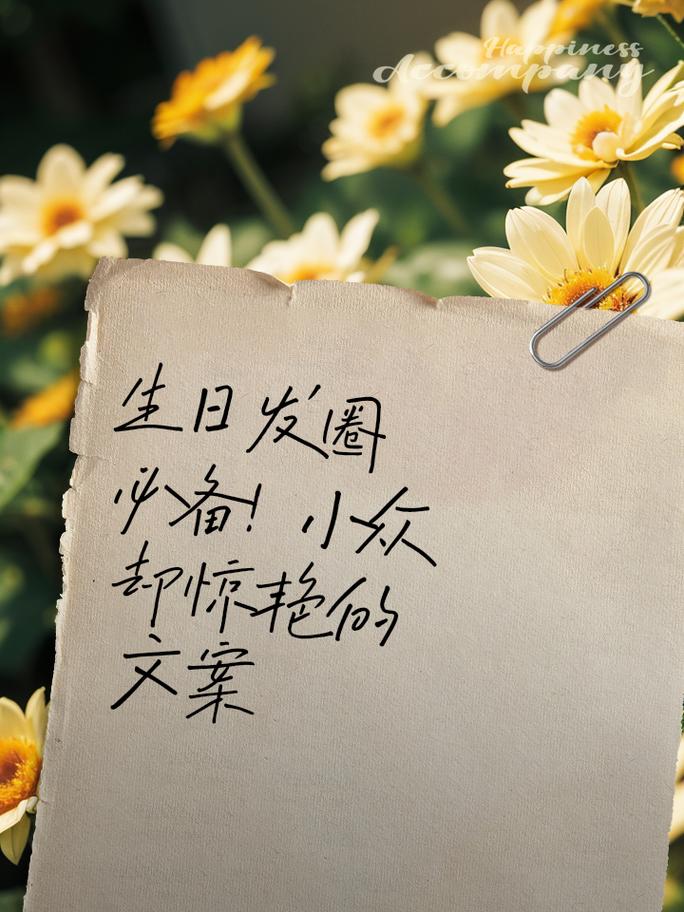 Happiness
Accompany
生日发圈
必备！小众
却惊艳的
文案